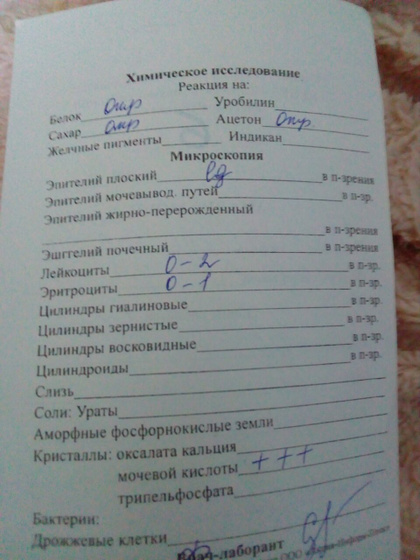 Химическое исследование
Реакция на:
Белок отр Уробилин
Сахар отр Ацетон отр
Желчные пигменты Индикан
Микроскопия
Эпителий плоский в п-зрения
Эпителий мочевывод. путей в п-зр.
Эпителий жирно-перерожденный
в п-зрения
Эштгелий почечный в п-зрения
Лейкоциты 0-2 в п-зр.
Эритроциты 0-1 в п-зр.
Цилиндры гиалиновые в п-зр.
Цилиндры зернистые в п-зр.
Цилиндры восковидные в п-зр.
Цилиндроиды в п-зр.
Слизь
Соли: Ураты
Аморфные фосфорнокислые земли
Кристаллы: оксалата кальция
мочевой кислоты +++
трипельфосфата
Бактерии:
Дрожжевые клетки
Врач-лаборант
ООО